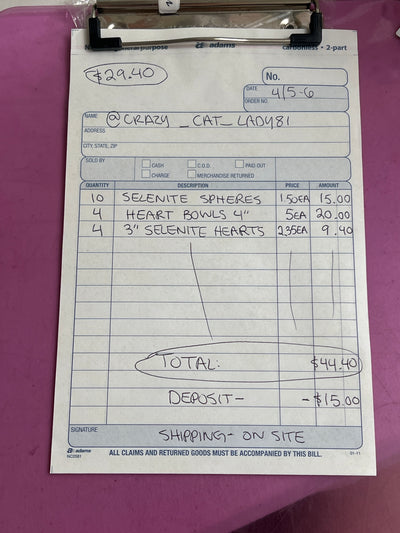 general purpose adams carbonless • 2-part
$29.40
No.
DATE 4/5-6
ORDER NO.
NAME @CRAZY_CAT_LADY81
ADDRESS
CITY, STATE, ZIP
SOLD BY CASH C.O.D. PAID OUT
CHARGE MERCHANDISE RETURNED
QUANTITY DESCRIPTION PRICE AMOUNT
10 SELENITE SPHERES 1.50EA 15.00
4 HEART BOWLS 4" 5EA 20.00
4 3" SELENITE HEARTS 2.35EA 9.40
TOTAL: $44.40
DEPOSIT- -$15.00
SIGNATURE
SHIPPING- ON SITE
adams ALL CLAIMS AND RETURNED GOODS MUST BE ACCOMPANIED BY THIS BILL. 01-11
NC2581